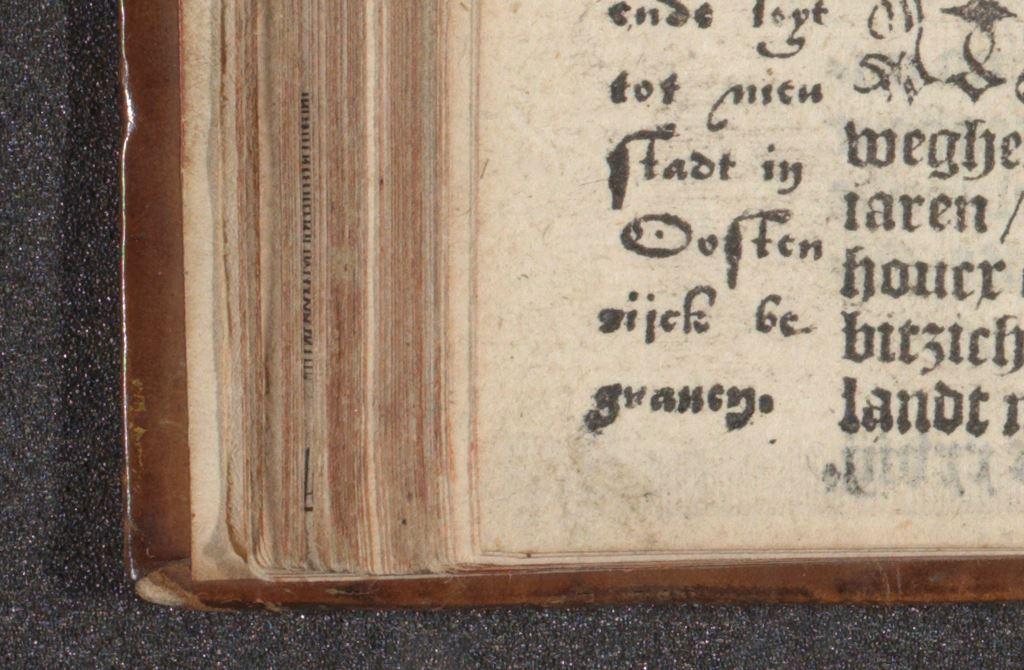 ende leyt
tot nieu
stadt in
Oosten
rijck be
grauen.
weghe
iaren /
houcx
bitzich
landt